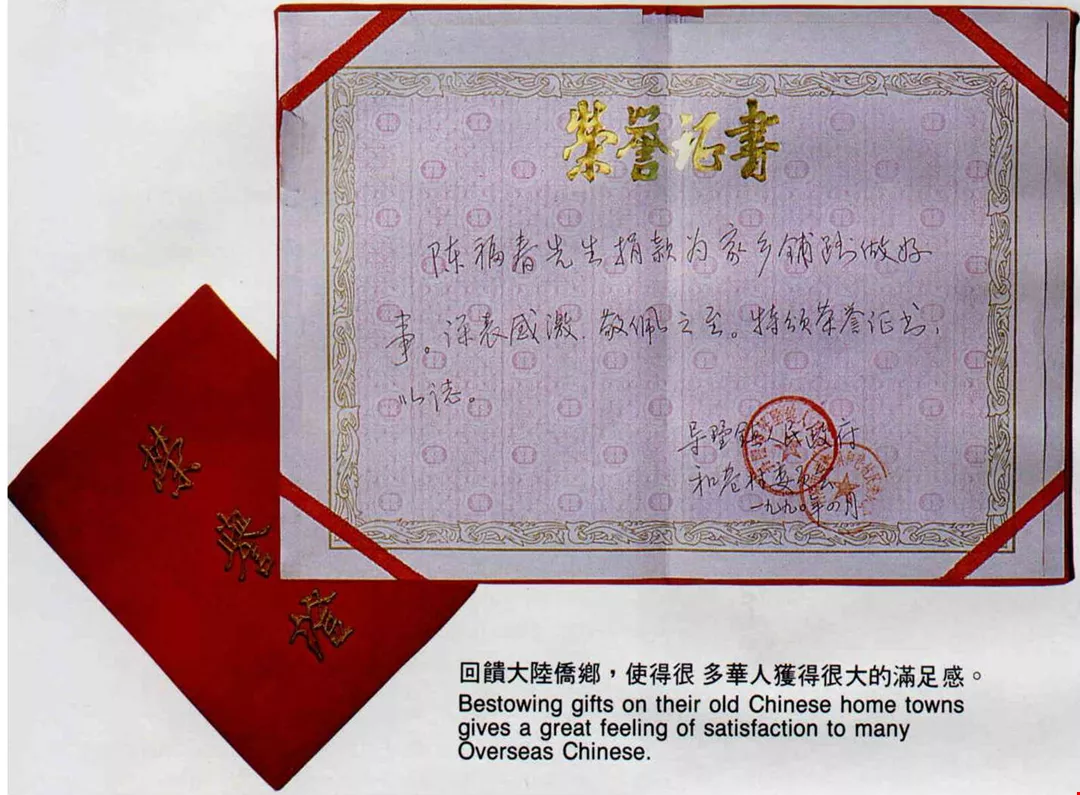 榮誉证书
陈福春先生捐款为家乡铺路做好
事。深表感激.敬佩之至。特颁荣誉证书,
以志。
人民政府
和巷村委员会
一九九〇年四月
荣
誉
回饋大陸僑鄉，使得很 多華人獲得很大的滿足感。
Bestowing gifts on their old Chinese home towns
gives a great feeling of satisfaction to many
Overseas Chinese.